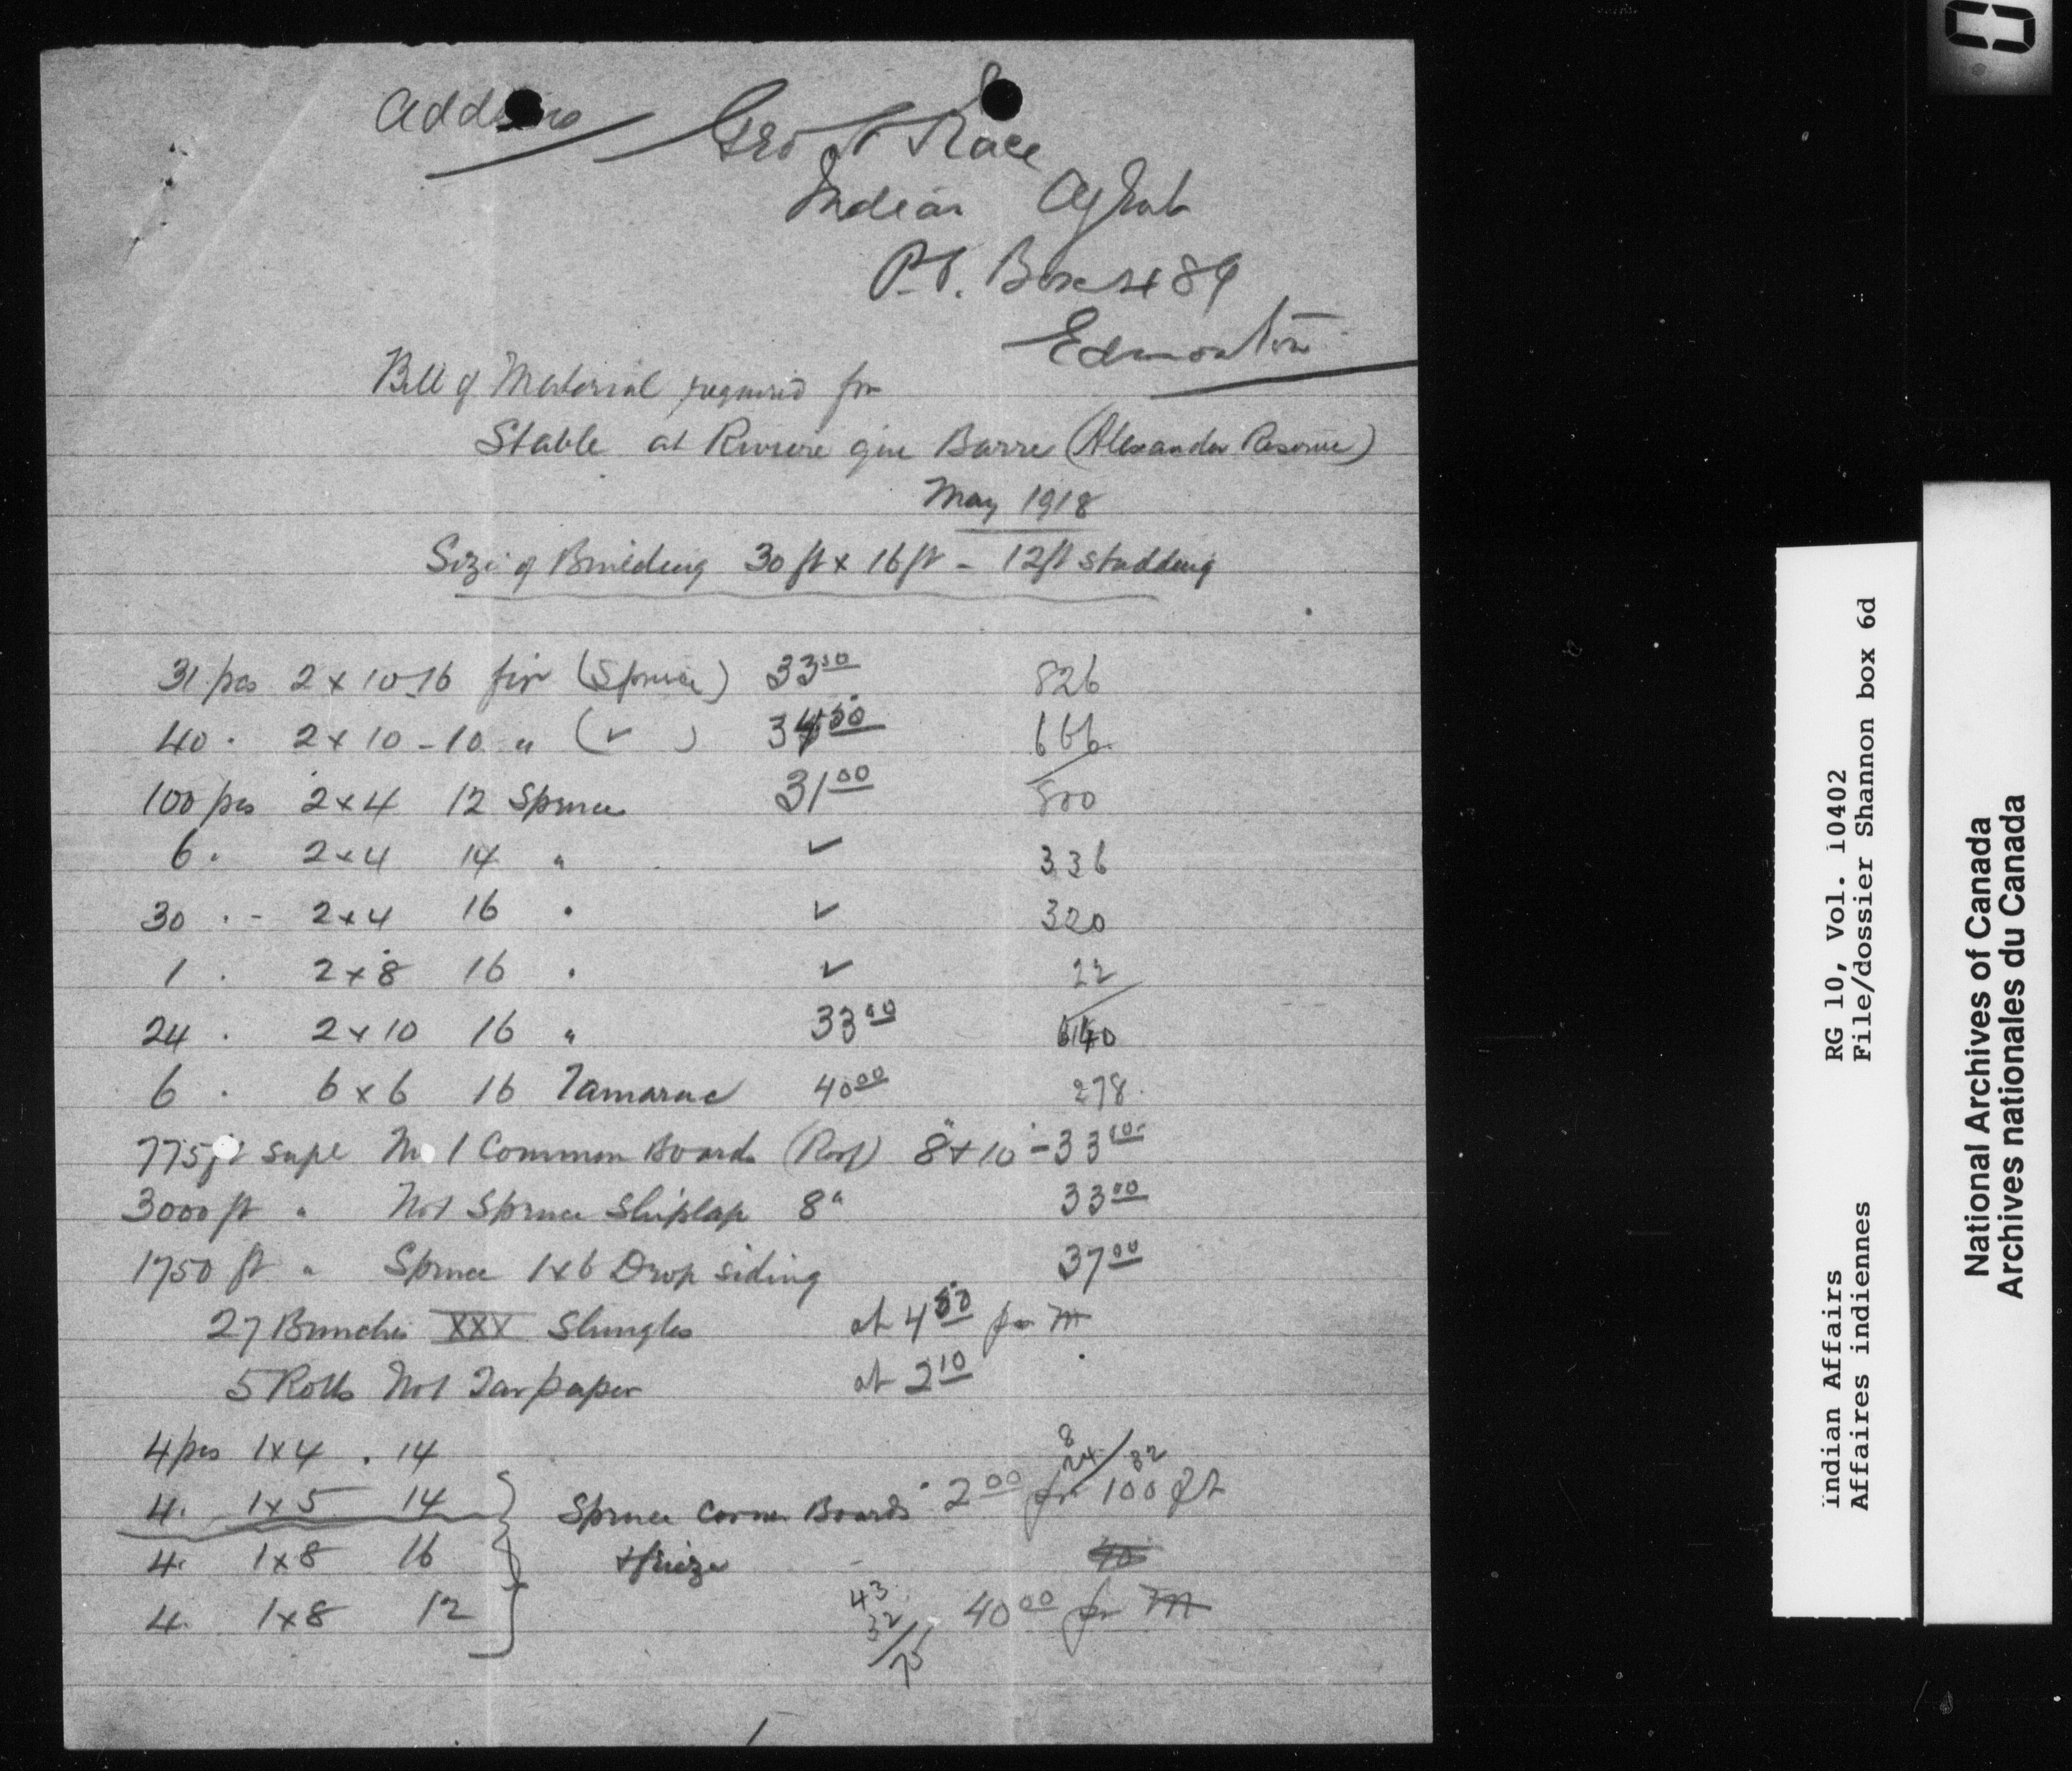 Address Geo H Race
Indian Agent
P.O. Box 489
Edmonton
Bill of Material required for
Stable at Riviere qui Barre (Alexander Reserve)
May 1918
Size of Building 30 ft x 16 ft - 12 ft studding
31 pcs 2 x 10-16 fir (Spruce) 33 50 826
40 . 2 x 10 - 10 " ( ✓ ) 34 50 666
100 pcs 2 x 4 12 Spruce 31 00 800
6 . 2 x 4 14 " ✓ 336
30 . - 2 x 4 16 " ✓ 320
1 . 2 x 8 16 " ✓ 22
24 . 2 x 10 16 " 33 00 640
6 . 6 x 6 16 Tamarac 40 00 278
775 ft supl No 1 Common Boards (Roof) 8" x 10 - 33 00
3000 ft " No 1 Spruce Shiplap 8" 33 00
1750 ft " Spruce 1x6 Drop siding 37 00
27 Bunches XXX Shingles at 4 50 per M
5 Rolls No 1 Tar paper at 2 10
4 pcs 1x4 . 14 8
24/32
4 . 1x5 14 Spruce Corner Boards 2 00 per 100 ft
4 . 1x8 16 & frieze
4 . 1x8 12 43 32/75 40 00 per M
Indian Affairs RG 10, Vol. 10402
Affaires indiennes File/dossier Shannon box 6d
National Archives of Canada
Archives nationales du Canada